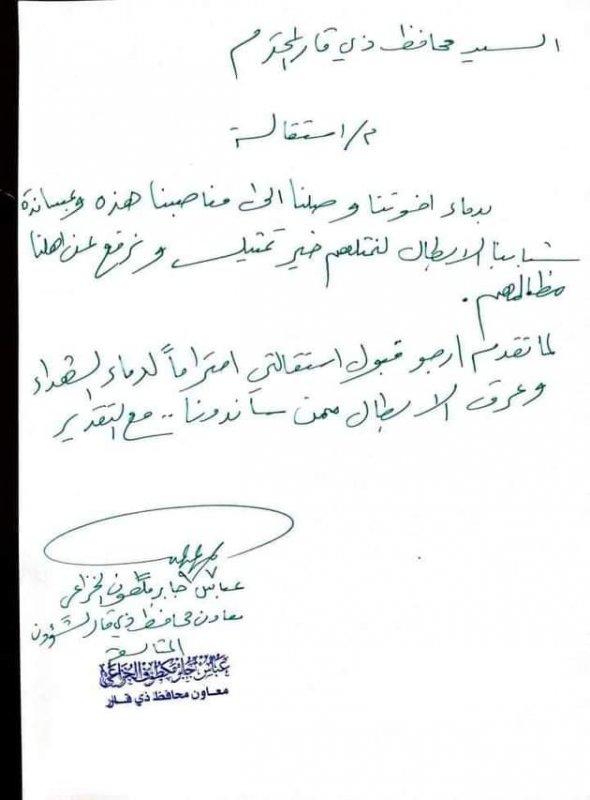 السيد محافظ ذي قار المحترم
م/ استقالة
بدماء اخوتنا وصلنا الى مناصبنا هذه وبمساندة
شبابنا الابطال لنمثلهم خير تمثيل و نرفع عن اهلنا
مظالمهم .
لما تقدم ارجو قبول استقالتي احتراماً لدماء الشهداء
وعرق الابطال ممن ساندونا .. مع التقدير
عباس جابر مطعون الخزاعي
معاون محافظ ذي قار لشؤون
عباس جابر الخزاعي
معاون محافظ ذي قار